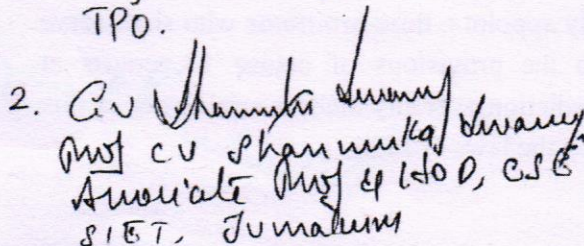 TPO.
2. CV Shanmuka Swamy
Prof CV Shanmuka Swamy
Associate Prof & HOD, CSE
SIET, Tumakuru